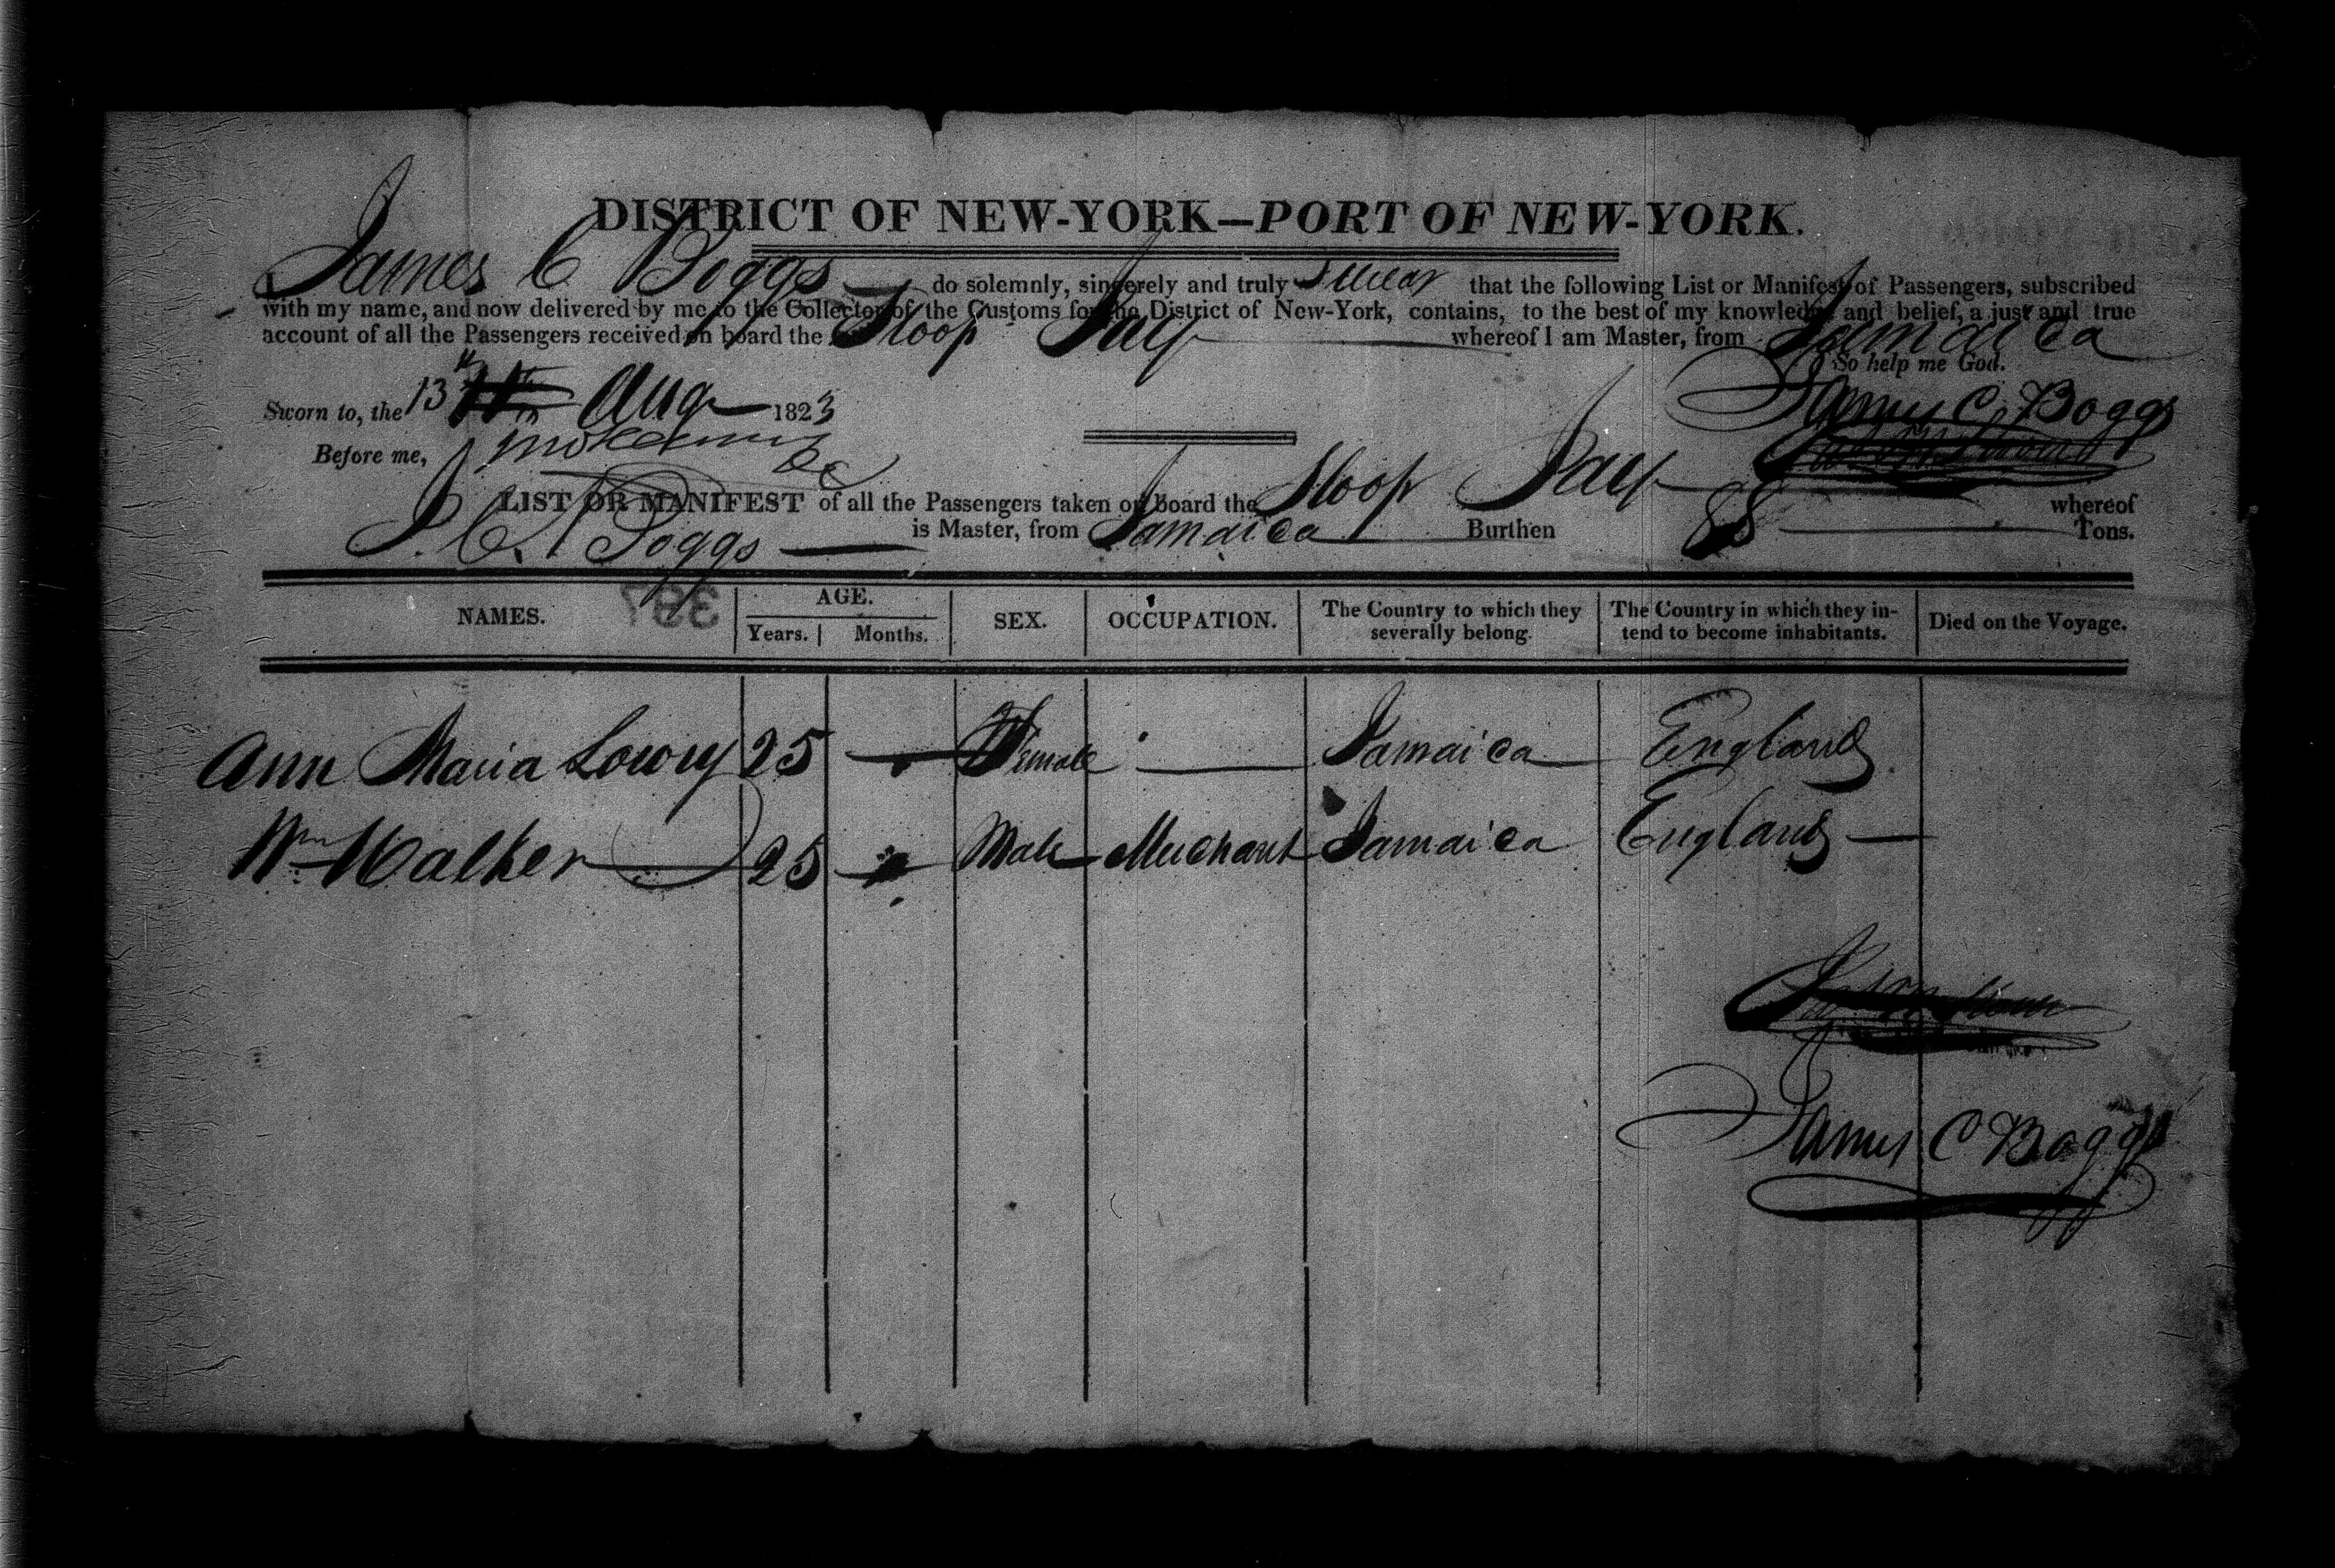 DISTRICT OF NEW-YORK—PORT OF NEW-YORK.
James C Boggs do solemnly, sincerely and truly Swear that the following List or Manifest of Passengers, subscribed
with my name, and now delivered by me to the Collector of the Customs for the District of New-York, contains, to the best of my knowledge and belief, a just and true
account of all the Passengers received on board the Sloop whereof I am Master, from Jamaica
So help me God.
Sworn to, the 13th Aug 1823
James C Boggs
Before me,
LIST OR MANIFEST of all the Passengers taken on board the Sloop whereof
J. C. Boggs is Master, from Jamaica Burthen 88 Tons.
NAMES. AGE. Years. Months. SEX. OCCUPATION. The Country to which they severally belong. The Country in which they intend to become inhabitants. Died on the Voyage.
Ann Maria Lowry 25 — Female — Jamaica England
Wm Walker 25 Male Merchant Jamaica England —
James C Boggs